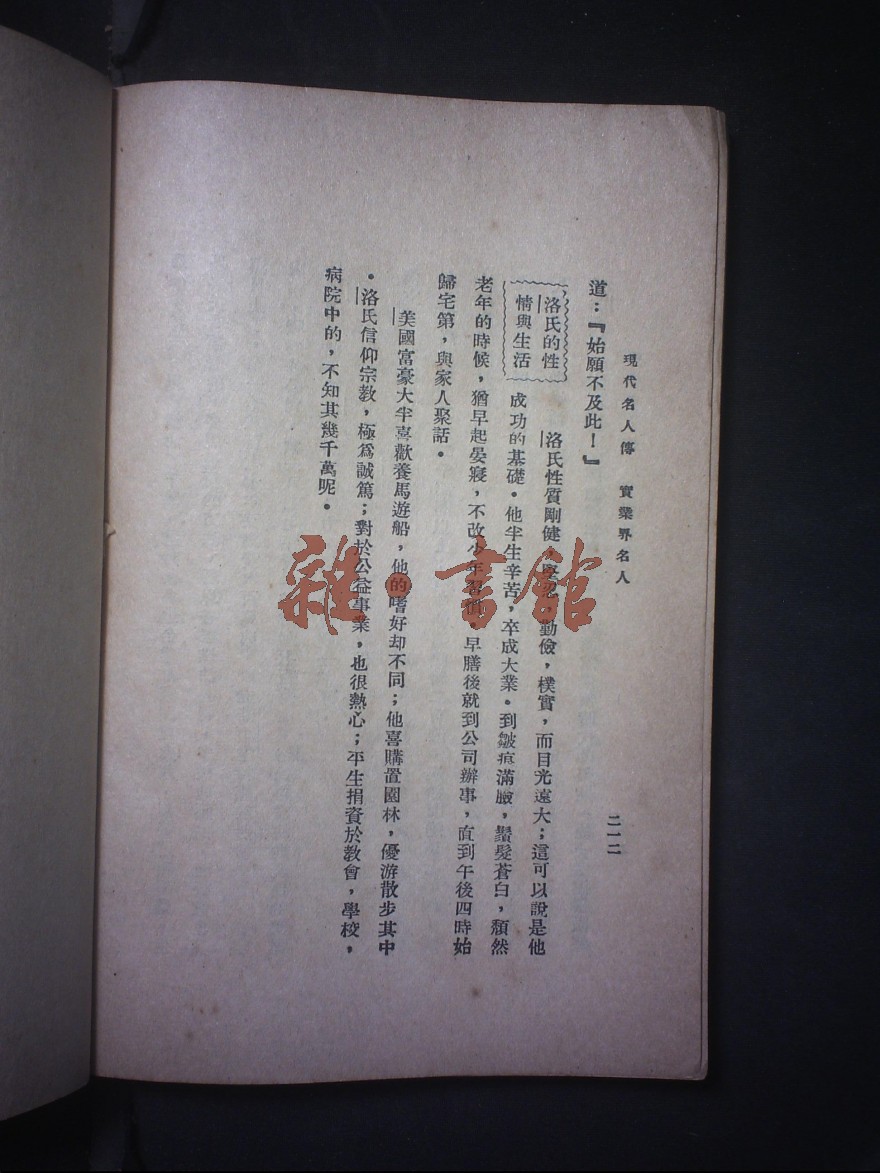 現代名人傳　實業界名人
二一二
道：『始願不及此！』
洛氏的性
情與生活
洛氏性質剛健，堅忍，勤儉，樸實，而目光遠大；這可以說是他
成功的基礎。他半生辛苦，卒成大業。到皺痕滿臉，鬚髮蒼白，頹然
老年的時候，猶早起晏寢，不改少年習慣。早膳後就到公司辦事，直到午後四時始
歸宅第，與家人聚話。
美國富豪大半喜歡養馬遊船，他的嗜好却不同；他喜購置園林，優游散步其中
。洛氏信仰宗教，極爲誠篤；對於公益事業，也很熱心；平生捐資於教會，學校，
病院中的，不知其幾千萬呢。
雜·書館